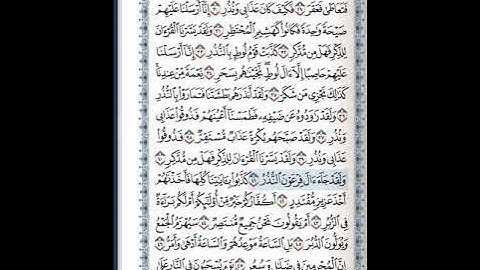 فَتَعَاطَىٰ فَعَقَرَ ﴿٢٩﴾ فَكَيْفَ كَانَ عَذَابِي وَنُذُرِ ﴿٣٠﴾ إِنَّا أَرْسَلْنَا عَلَيْهِمْ
صَيْحَةً وَاحِدَةً فَكَانُوا كَهَشِيمِ الْمُحْتَظِرِ ﴿٣١﴾ وَلَقَدْ يَسَّرْنَا الْقُرْآنَ
لِلذِّكْرِ فَهَلْ مِن مُّدَّكِرٍ ﴿٣٢﴾ كَذَّبَتْ قَوْمُ لُوطٍ بِالنُّذُرِ ﴿٣٣﴾ إِنَّا أَرْسَلْنَا
عَلَيْهِمْ حَاصِبًا إِلَّا آلَ لُوطٍ نَّجَّيْنَاهُم بِسَحَرٍ ﴿٣٤﴾ نِّعْمَةً مِّنْ عِندِنَا
كَذَٰلِكَ نَجْزِي مَن شَكَرَ ﴿٣٥﴾ وَلَقَدْ أَنذَرَهُم بَطْشَتَنَا فَتَمَارَوْا بِالنُّذُرِ
﴿٣٦﴾ وَلَقَدْ رَاوَدُوهُ عَن ضَيْفِهِ فَطَمَسْنَا أَعْيُنَهُمْ فَذُوقُوا عَذَابِي
وَنُذُرِ ﴿٣٧﴾ وَلَقَدْ صَبَّحَهُم بُكْرَةً عَذَابٌ مُّسْتَقِرٌّ ﴿٣٨﴾ فَذُوقُوا
عَذَابِي وَنُذُرِ ﴿٣٩﴾ وَلَقَدْ يَسَّرْنَا الْقُرْآنَ لِلذِّكْرِ فَهَلْ مِن مُّدَّكِرٍ ﴿٤٠﴾
وَلَقَدْ جَاءَ آلَ فِرْعَوْنَ النُّذُرُ ﴿٤١﴾ كَذَّبُوا بِآيَاتِنَا كُلِّهَا فَأَخَذْنَاهُمْ
أَخْذَ عَزِيزٍ مُّقْتَدِرٍ ﴿٤٢﴾ أَكُفَّارُكُمْ خَيْرٌ مِّنْ أُولَٰئِكُمْ أَمْ لَكُم بَرَاءَةٌ
فِي الزُّبُرِ ﴿٤٣﴾ أَمْ يَقُولُونَ نَحْنُ جَمِيعٌ مُّنتَصِرٌ ﴿٤٤﴾ سَيُهْزَمُ الْجَمْعُ
وَيُوَلُّونَ الدُّبُرَ ﴿٤٥﴾ بَلِ السَّاعَةُ مَوْعِدُهُمْ وَالسَّاعَةُ أَدْهَىٰ وَأَمَرُّ ﴿٤٦﴾
إِنَّ الْمُجْرِمِينَ فِي ضَلَالٍ وَسُعُرٍ ﴿٤٧﴾ يَوْمَ يُسْحَبُونَ فِي النَّارِ عَلَىٰ